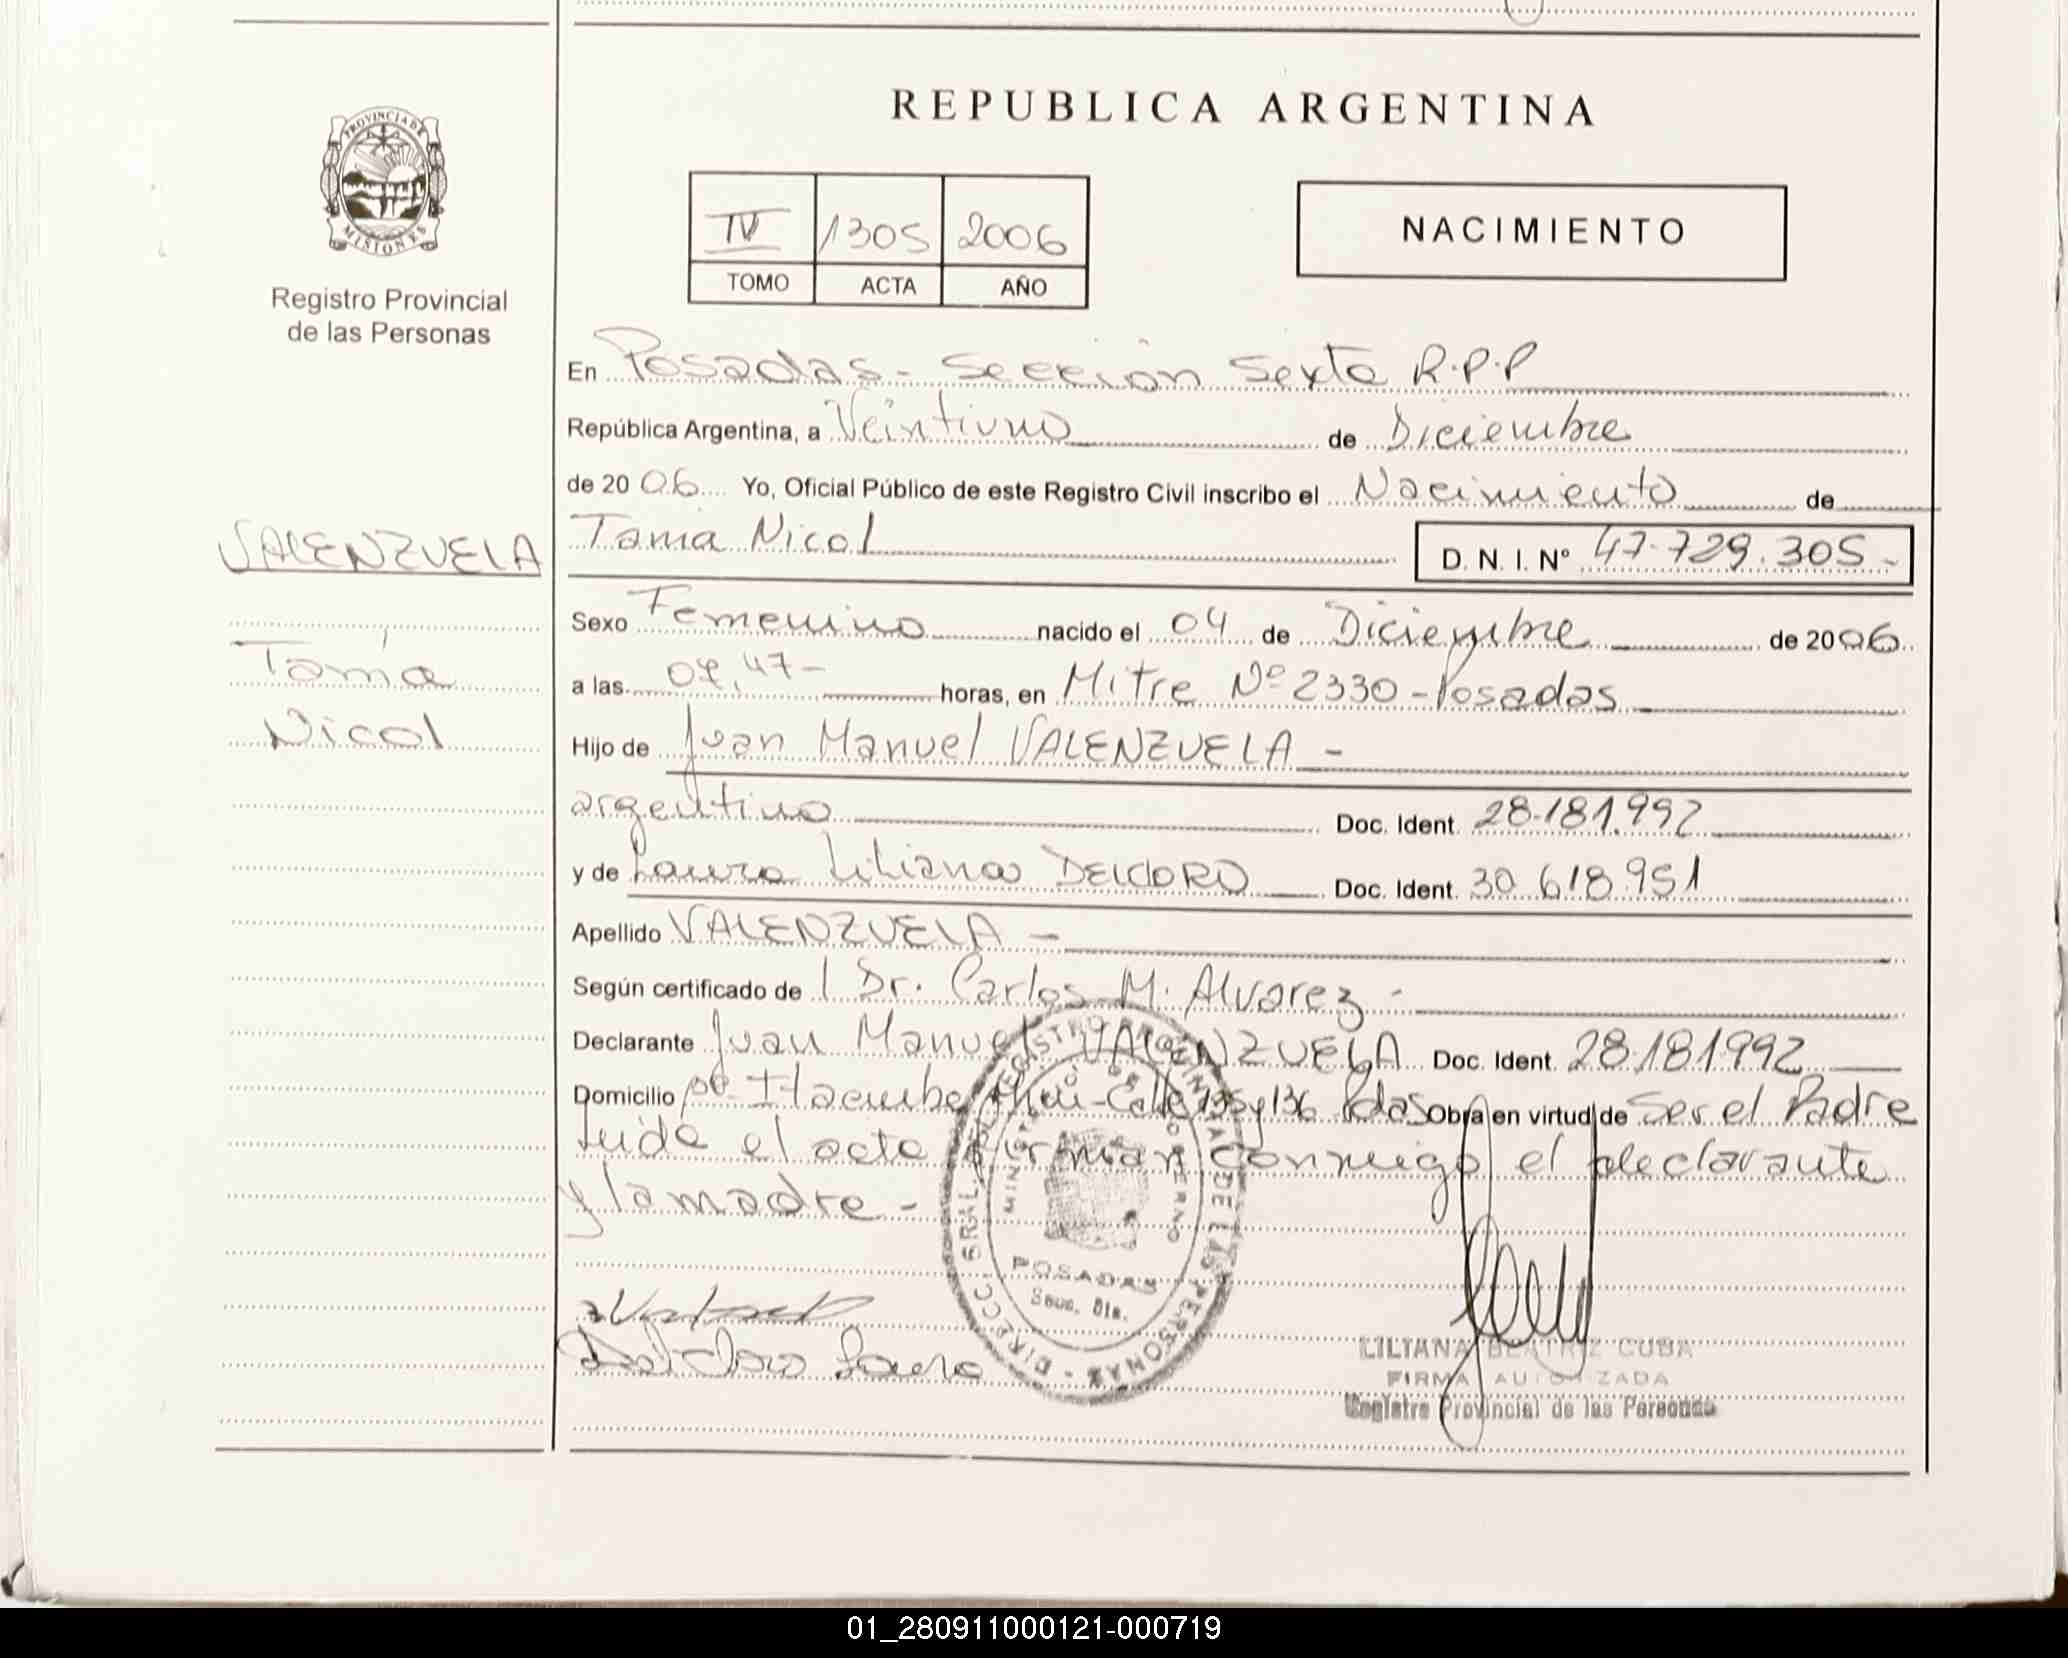 REPUBLICA ARGENTINA
PROVINCIA DE
MISIONES
Registro Provincial
de las Personas
IV 1305 2006
TOMO ACTA AÑO
NACIMIENTO
En Posadas - Sección Sexta R.P.P
República Argentina, a Veintiuno de Diciembre
de 2006 Yo, Oficial Público de este Registro Civil inscribo el Nacimiento de
VALENZUELA
Tania Nicol
D. N. I. Nº 47.729.305 -
Tania
Nicol
Sexo Femenino nacido el 04 de Diciembre de 2006
a las 07,47 - horas, en Mitre Nº 2330 - Posadas
Hijo de Juan Manuel VALENZUELA -
argentino Doc. Ident. 28.181.992
y de Laura Liliana DELCORO Doc. Ident. 30.618.951
Apellido VALENZUELA -
Según certificado de l Dr. Carlos M. Alvarez -
Declarante Juan Manuel VALENZUELA Doc. Ident. 28.181.992
Domicilio Calle 135 y 136 Pdas Obra en virtud de Ser el Padre
Leida el acta firman conmigo el declarante
y la madre -
DIRECC. GRAL. DEL REGISTRO PROVINCIAL DE LAS PERSONAS
MINISTERIO DE GOBIERNO
POSADAS
Secc. 6ta.
Laura
LILIANA BEATRIZ CUBA
FIRMA AUTORIZADA
Registro Provincial de las Personas
01_280911000121-000719